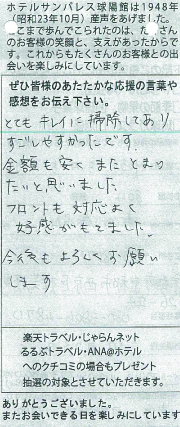 ホテルサンパレス球陽館は1948年
(昭和23年10月)産声をあげました。
こまで歩んでこられたのは、た さん
のお客様の笑顔と、支えがあったからで
す。これからもたくさんのお客様との出
会いを楽しみにしています。
ぜひ皆様のあたたかな応援の言葉や
感想をお伝え下さい。
とても キレイに掃除してあり
すごしやすかったです。
金額も安く またとまり
たいと思いました
フロントも対応よく
好感がもてました。
今後もよろしくお願い
します
楽天トラベル・じゃらんネット
るるぶトラベル・ANA@ホテル
へのクチコミの場合もプレゼント
抽選の対象とさせていただきます。
ありがとうございました。
またお会いできる日を楽しみにしています